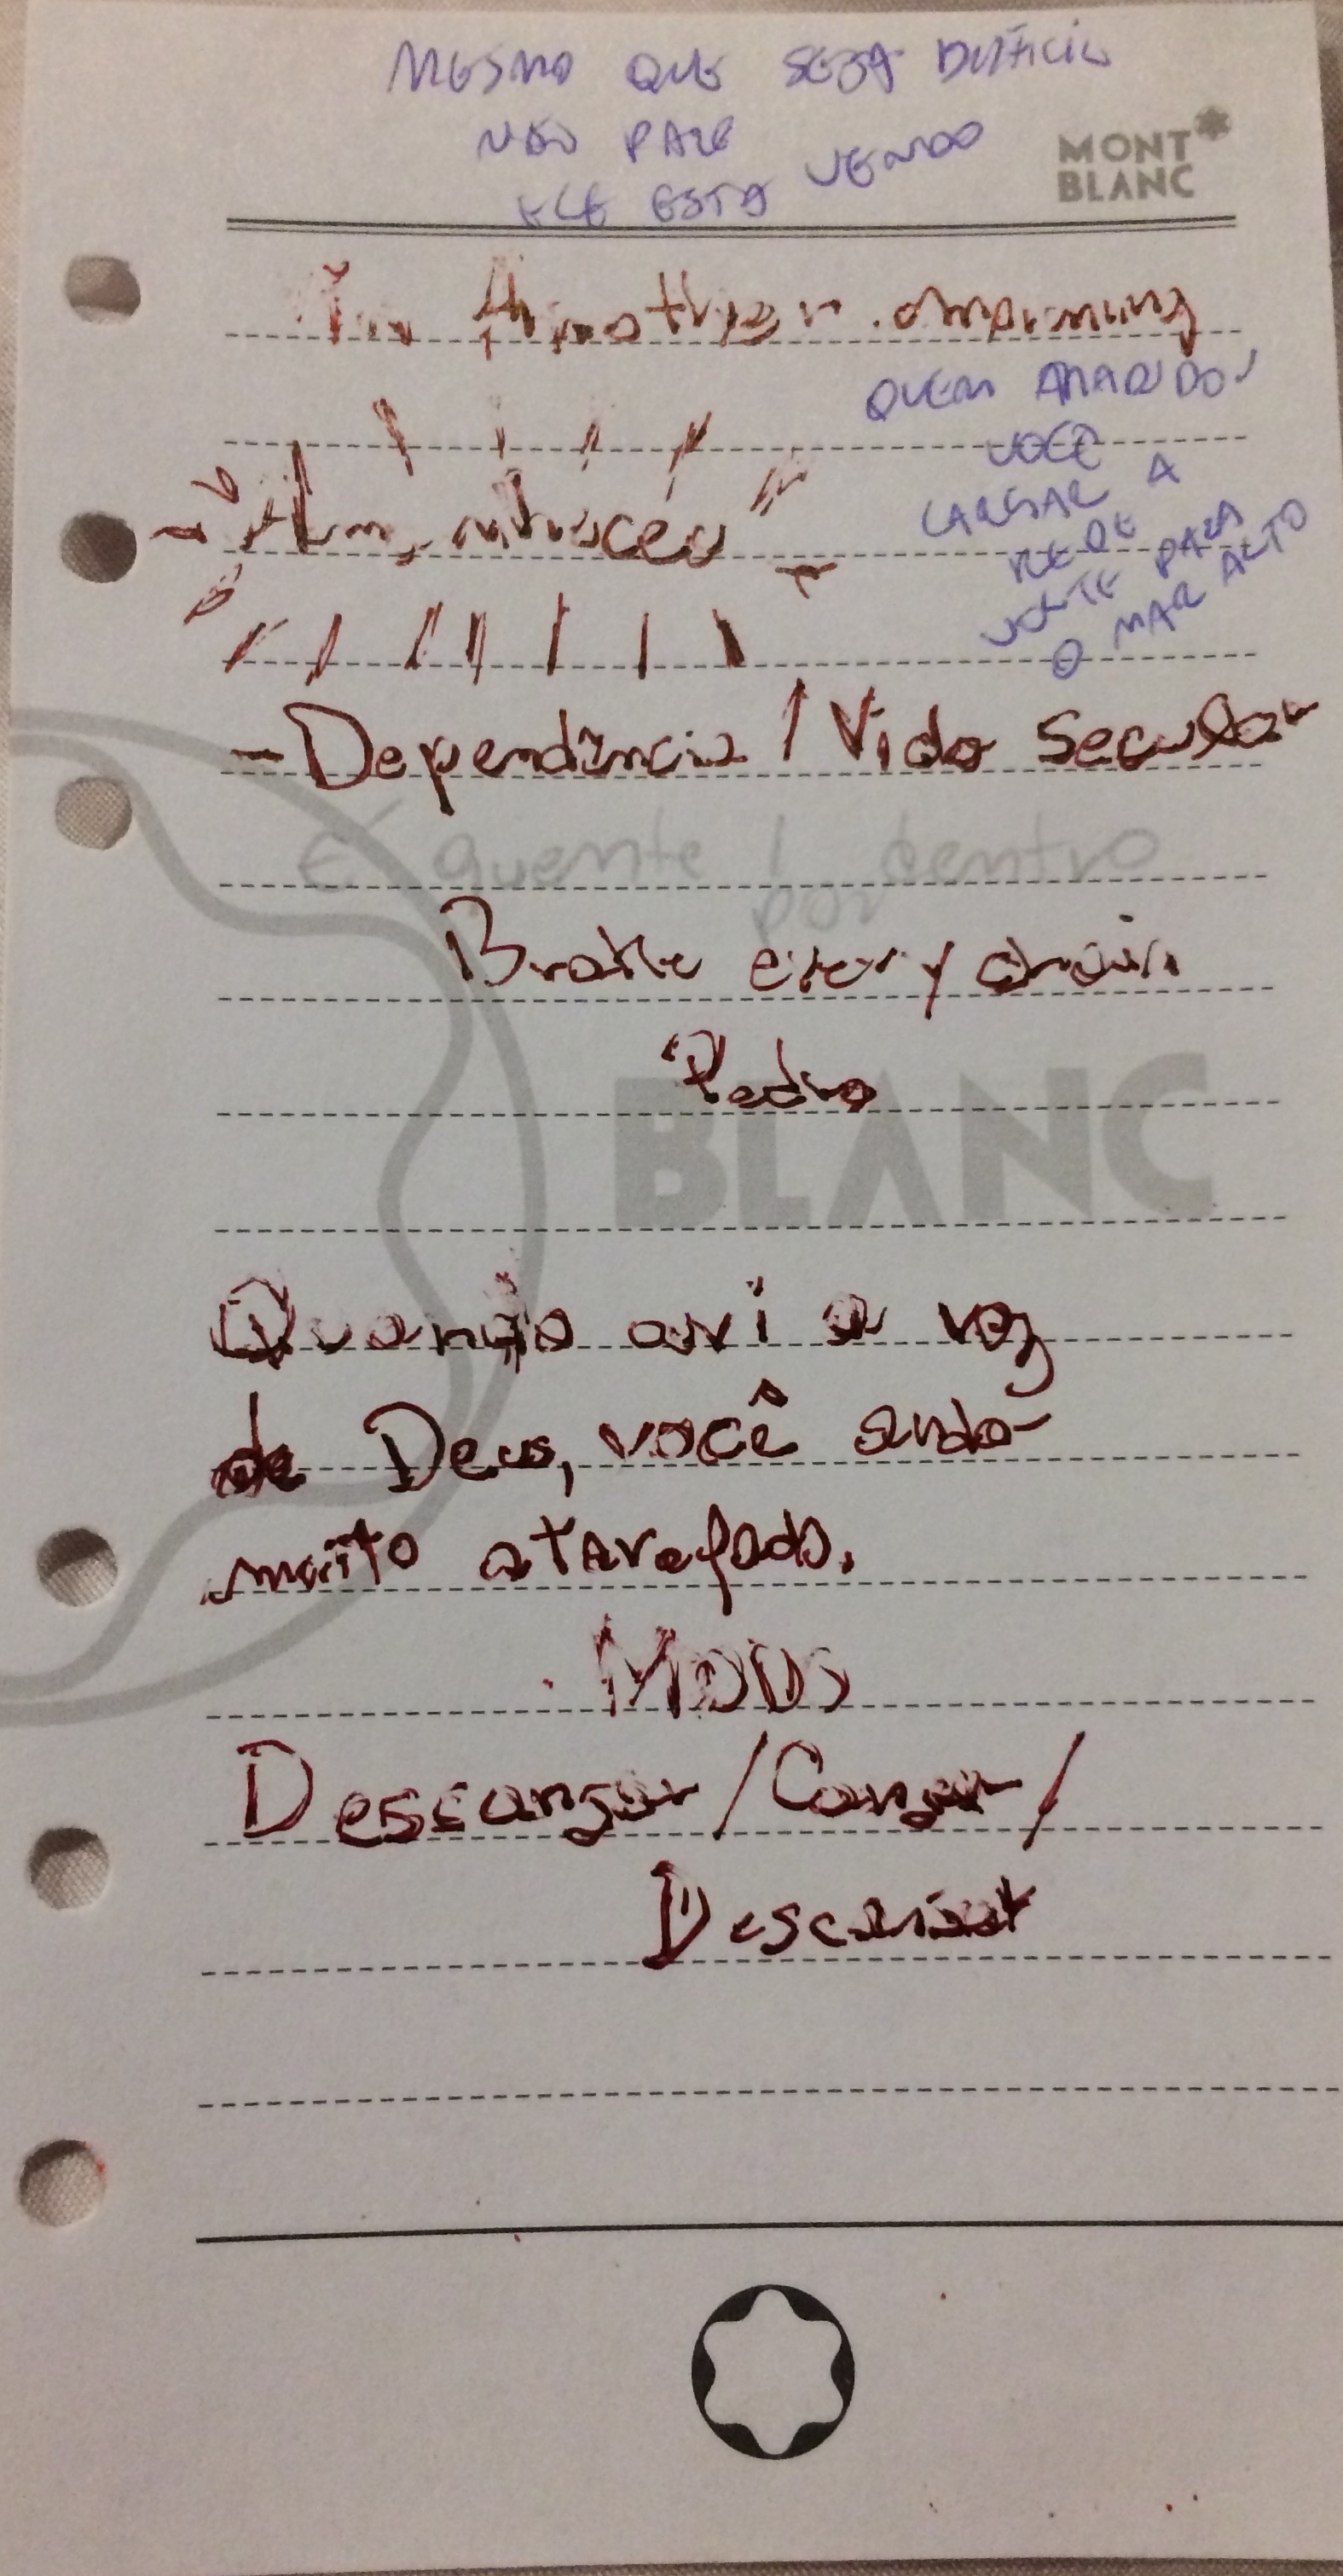 MESMO QUE SEJA DIFÍCIL
NÃO PARE
ELE ESTÁ VENDO
MONT
BLANC
QUEM
VOCÊ
LARGAR A
REDE
VOLTE PARA
O MAR ALTO
- Dependência / Vida Secular
É quente por dentro
Brake every chain
Pedro
BLANC
Quando ouvi a voz
de Deus, você anda
muito atarefado.
MODOS
Descansar / Cansar /
Descansar